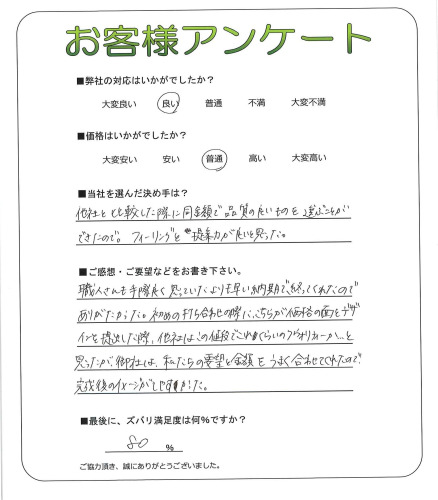 お客様アンケート
■弊社の対応はいかがでしたか？
大変良い 良い 普通 不満 大変不満
■価格はいかがでしたか？
大変安い 安い 普通 高い 大変高い
■当社を選んだ決め手は？
他社と比較した際に同金額で品質の良いものを選ぶことが
できたので。フィーリングと提案力が良いと思った。
■ご感想・ご要望などをお書き下さい。
職人さんも手際良く思っていたより早い納期で終ってくれたので
ありがたかった。初めの打ち合わせの際に、こちらが価格の面とデザ
インを提出した際、他社はこの値段でこれくらいの
思ったが、御社は、私たちの要望と金額をうまく合わせてくれたので
完成後のイメージがしやすかった。
■最後に、ズバリ満足度は何％ですか？
80 ％
ご協力頂き、誠にありがとうございました。